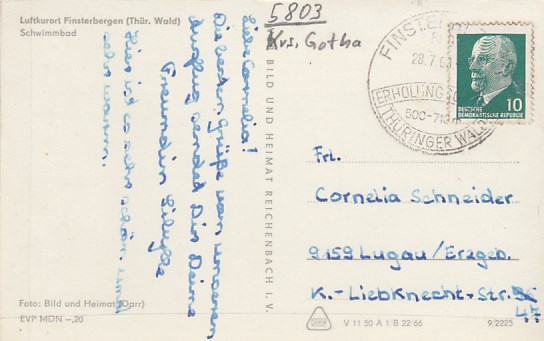 Luftkurort Finsterbergen (Thür. Wald)
Schwimmbad
5803
Krs. Gotha
Liebe Cornelia!
Die besten Grüße von unserem
Ausflug sendet Dir Deine
Freundin
Hier ist es sehr schön und
sehr warm.
BILD UND HEIMAT REICHENBACH I. V.
28.7.
ERHOLUNGSO
500-71
THÜRINGER WALD
10
DEUTSCHE
DEMOKRATISCHE REPUBLIK
Frl.
Cornelia Schneider
9159 Lugau/Erzgeb.
K.-Liebknecht-Str.
47
Foto: Bild und Heimat (Darr)
EVP MDN -,20
V 11 50 A 1 B 22/66
9/2225